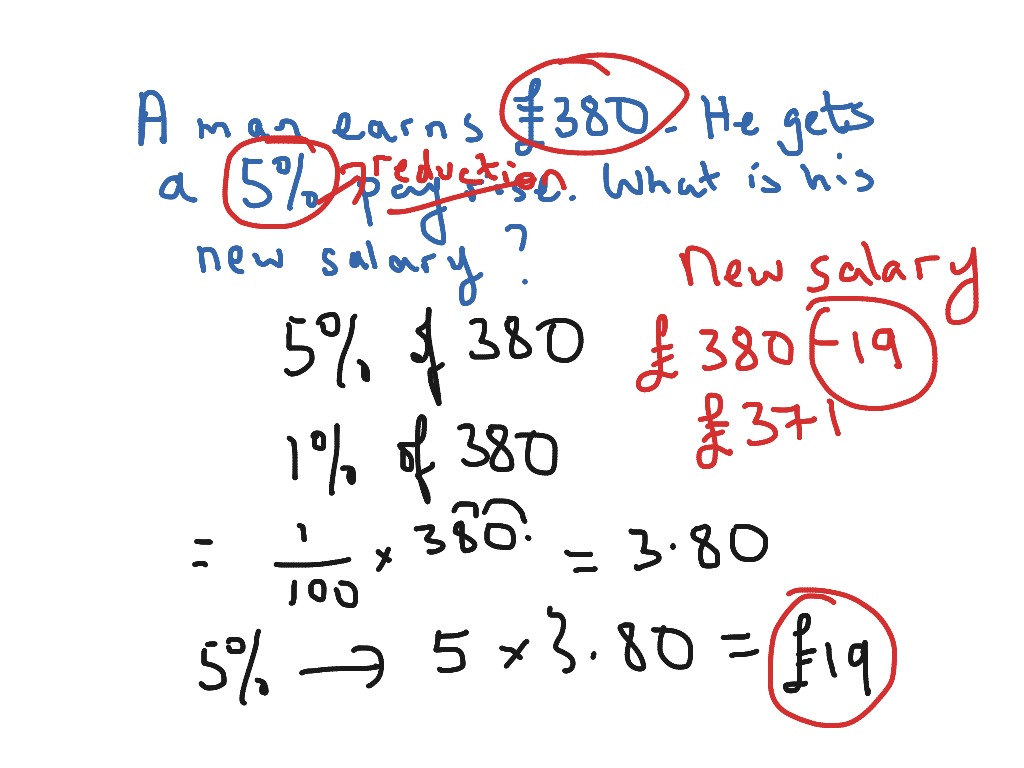 A man earns £380. He gets
a 5% → reduction pay rise. What is his
new salary?
New salary
5% of 380
£380 - 19
£371
1% of 380
= 1/100 × 380. = 3.80
5% → 5 × 3.80 = £19